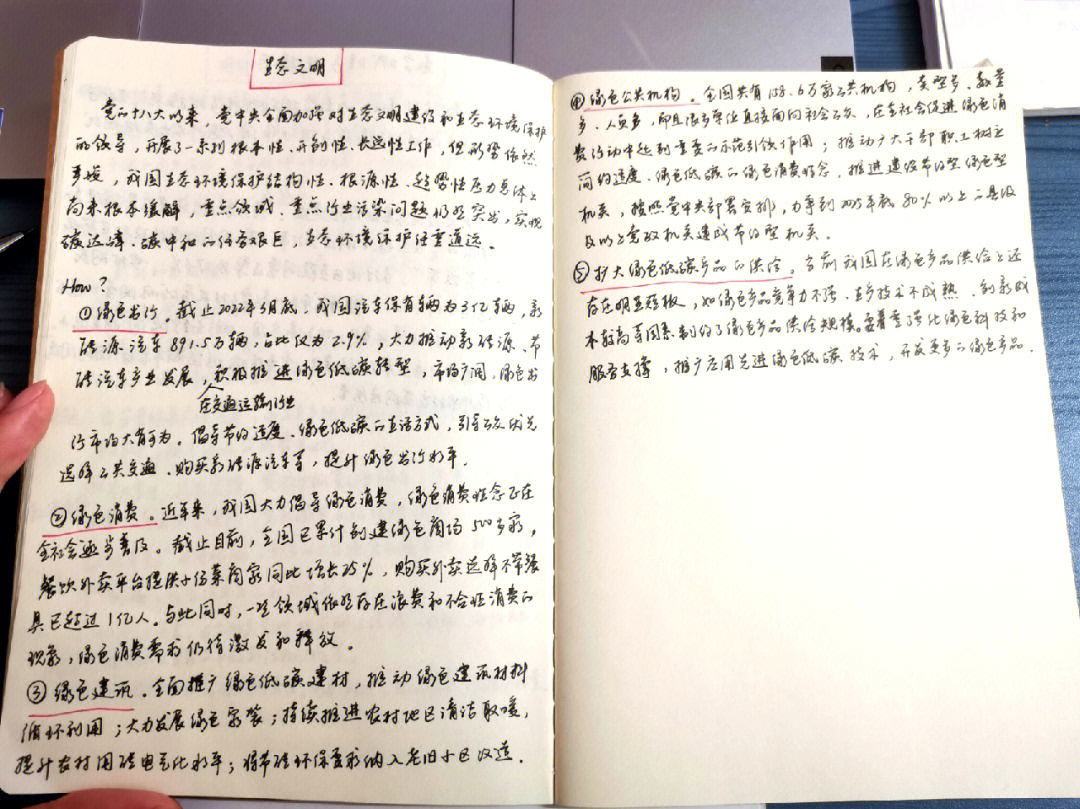 生态文明
党的十八大以来，党中央全面加强对生态文明建设和生态环境保护
的领导，开展了一系列根本性、开创性、长远性工作，但形势依然
严峻，我国生态环境保护结构性、根源性、趋势性压力总体上
尚未根本缓解，重点领域、重点行业污染问题仍然突出，实现
碳达峰、碳中和的任务艰巨，生态环境保护任重道远。
How？
①绿色出行。截止2022年3月底，我国汽车保有辆为3亿辆，新
能源汽车891.5万辆，占比仅为2.9%，大力推动新能源、节
能汽车产业发展，积极推进绿色低碳转型，市场广阔，绿色出
在交通运输行业
行市场大有可为。倡导节约适度、绿色低碳的生活方式，引导公众优先
选择公共交通、购买新能源汽车等，提升绿色出行水平。
②绿色消费。近年来，我国大力倡导绿色消费，绿色消费理念正在
全社会逐步普及。截止目前，全国已累计创建绿色商场500多家，
餐饮外卖平台提供小份菜商家同比增长25%，购买外卖选择不带餐
具已超过1亿人。与此同时，一些领域依然存在浪费和不合理消费的
现象，绿色消费需求仍待激发和释放。
③绿色建筑。全面推广绿色低碳建材，推动绿色建筑材料
循环利用；大力发展绿色家装；持续推进农村地区清洁取暖，
提升农村用能电气化水平；将节能环保要求纳入老旧小区改造。
④绿色公共机构。全国共有158.6万家公共机构，类型多、数量
多、人员多，而且很多单位直接面向社会公众，在全社会促进绿色消
费行动中起到重要的示范引领作用；推动广大干部职工树立
简约适度、绿色低碳的绿色消费理念，推进建设节约型绿色型
机关，按照党中央部署安排，力争到2025年底80%以上的县级
及以上党政机关建成节约型机关。
⑤扩大绿色低碳产品的供给。当前我国在绿色产品供给上还
存在明显短板，如绿色产品竞争力不强、生产技术不成熟、创新成
本较高等因素制约了绿色产品供给规模。要着重强化绿色科技和
服务支撑，推广应用先进绿色低碳技术，开发更多的绿色产品。